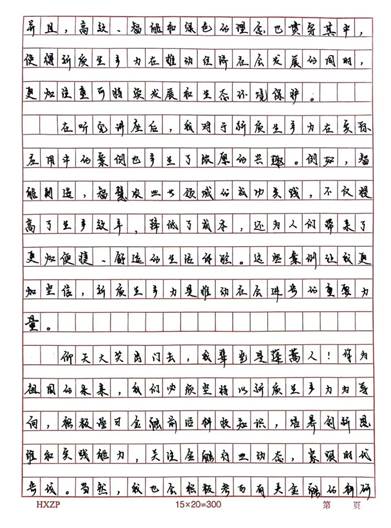 并且，高效、智能和绿色的理念也贯穿其中，
使得新质生产力在推动经济社会发展的同时，
更加注重可持续发展和生态环境保护。
在听完讲座后，我对于新质生产力在实际
应用中的案例也产生了浓厚的兴趣。例如，智
能制造，智慧农业等领域的成功实践，不仅提
高了生产效率，降低了成本，还为人们带来了
更加便捷、舒适的生活体验。这些案例让我更
加坚信，新质生产力是推动社会进步的重要力
量。
仰天大笑出门去，我辈岂是蓬蒿人！作为
祖国的未来，我们必须坚持以新质生产力为导
向，积极学习金融前沿科技知识，培养创新思
维和实践能力，关注金融行业动态，紧跟时代
考试。当然，我也会积极参与有关金融的科研
HXZP 15×20=300 第 页